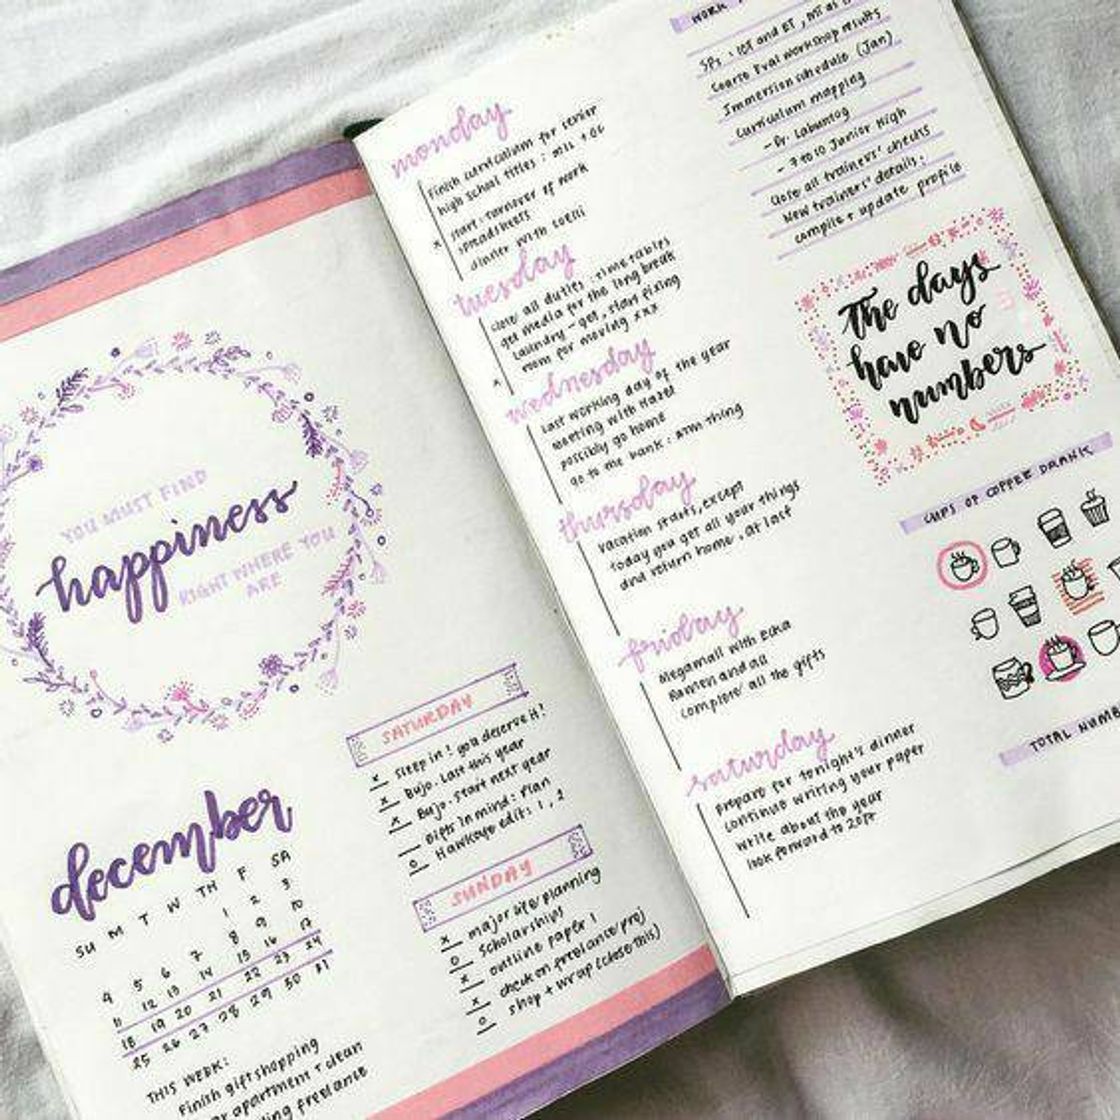 YOU MUST FIND
happiness
RIGHT WHERE YOU
ARE
december
SU M T W TH F SA
1 2 3
4 5 6 7 8 9 10
11 12 13 14 15 16 17
18 19 20 21 22 23 24
25 26 27 28 29 30 31
THIS WEEK:
Finish giftshopping
apartment + clean
freelance
SATURDAY
x Sleep in! you deserve it!
x Bujo. Last this year
x Bujo. Start next year
Gifts in mind: Plan
o Hawkeye edit: 1, 2
SUNDAY
x major life planning
o scholarships
x outline paper 1
x check on freelance proj
o shop + wrap (close this)
monday
Finish curriculum for senior
high school titles:
x start: turnover of work
spreadsheets
dinner with
tuesday
close all duties, timetables
get media for the long break
Laundry - get, start fixing
x room for moving xxx
wednesday
Last working day of the year
Meeting with Hazel
possibly go home
go to the bank: ATM thing
thursday
Vacation starts, except
today you get all your things
and return home, at last
friday
Megamall with
Ramen and all
Complete all the gifts
saturday
Prepare for tonight's dinner
continue writing your paper
write about the year
look forward to 2017
WORK
SPs: ICT and ET,
Course Eval workshop results
Immersion schedule (Jan)
Curriculum mapping
- Gr. Labuntog
- 7 to 10 Junior High
Close all trainers' checks
New trainers' details:
compile + update profile
The days
have no
numbers
CUPS OF COFFEE DRANK
TOTAL